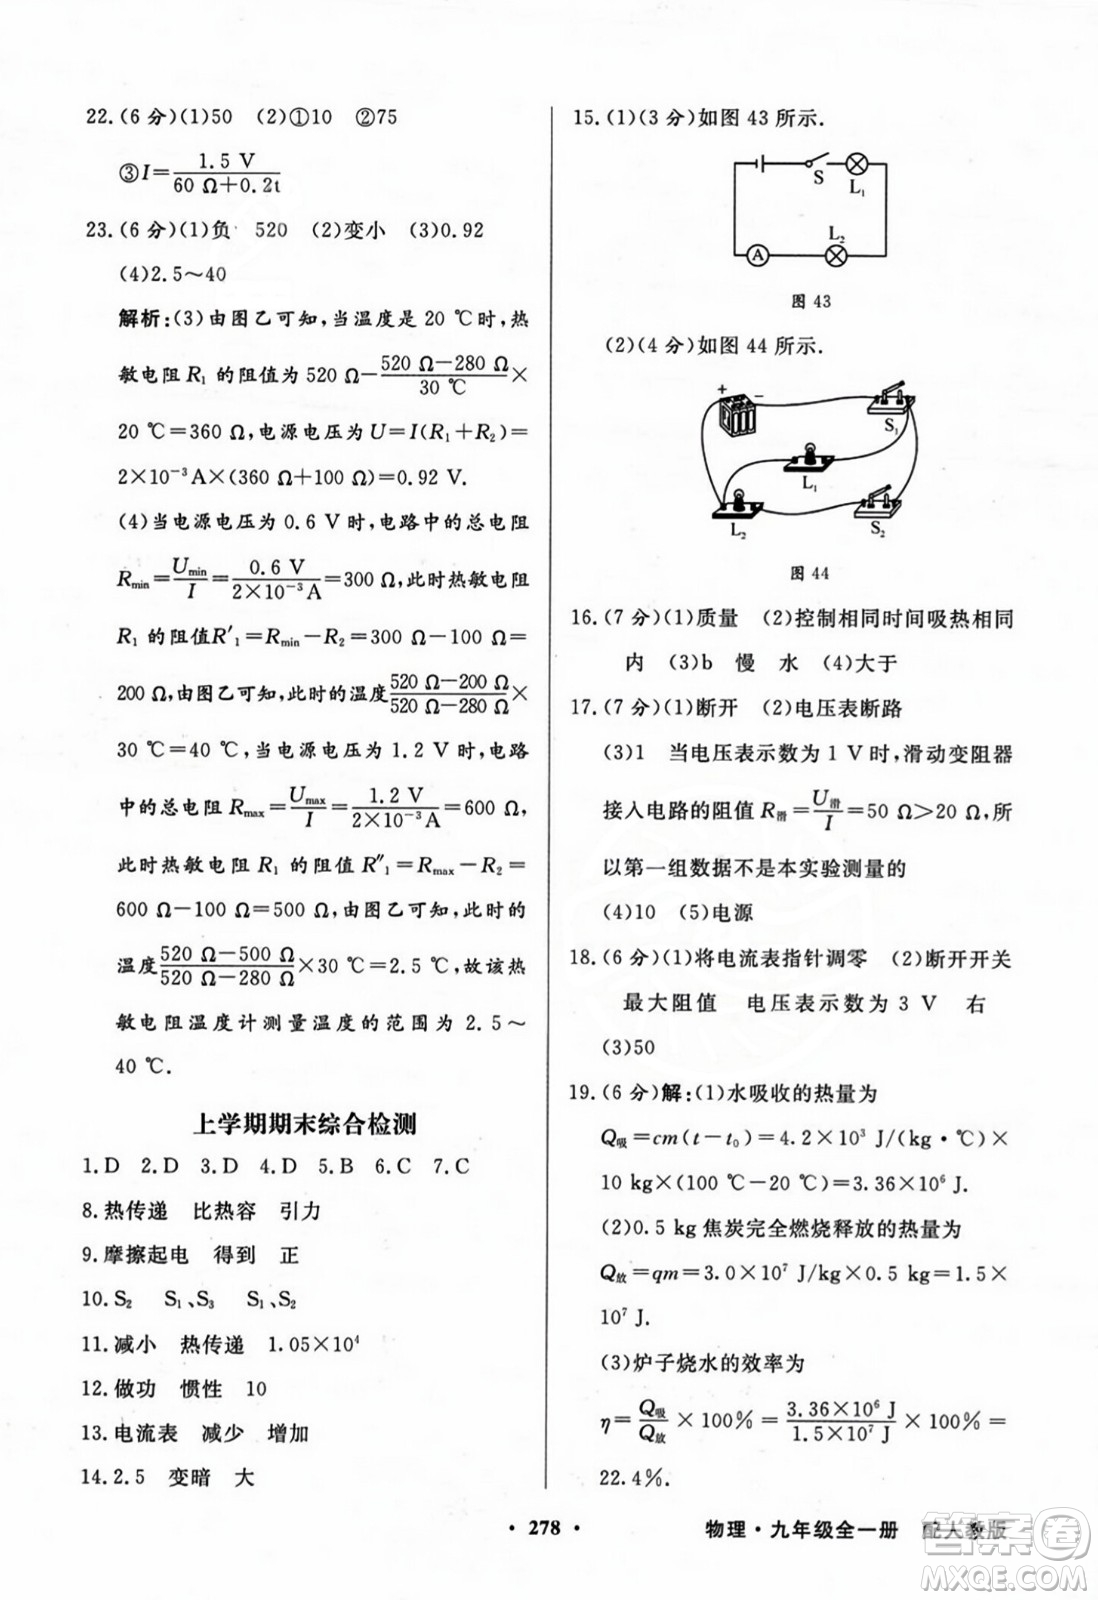 22.(6分)(1)50 (2)①10 ②75
③I=1.5 V/(60 Ω+0.2t)
23.(6分)(1)负 520 (2)变小 (3)0.92
(4)2.5～40
解析:(3)由图乙可知,当温度是 20 ℃时,热
敏电阻R₁的阻值为 520 Ω−(520 Ω−280 Ω)/30 ℃×
20 ℃=360 Ω,电源电压为U=I(R₁+R₂)=
2×10⁻³A×(360 Ω+100 Ω)=0.92 V.
(4)当电源电压为 0.6 V 时,电路中的总电阻
Rmin=Umin/I=0.6 V/(2×10⁻³A)=300 Ω,此时热敏电阻
R₁的阻值R′₁=Rmin−R₂=300 Ω−100 Ω=
200 Ω,由图乙可知,此时的温度(520 Ω−200 Ω)/(520 Ω−280 Ω)×
30 ℃=40 ℃,当电源电压为 1.2 V 时,电路
中的总电阻Rmax=Umax/I=1.2 V/(2×10⁻³A)=600 Ω,
此时热敏电阻R₁的阻值R″₁=Rmax−R₂=
600 Ω−100 Ω=500 Ω,由图乙可知,此时的
温度(520 Ω−500 Ω)/(520 Ω−280 Ω)×30 ℃=2.5 ℃,故该热
敏电阻温度计测量温度的范围为 2.5～
40 ℃.
上学期期末综合检测
1.D 2.D 3.D 4.D 5.B 6.C 7.C
8.热传递 比热容 引力
9.摩擦起电 得到 正
10.S₂ S₁、S₃ S₁、S₂
11.减小 热传递 1.05×10⁴
12.做功 惯性 10
13.电流表 减少 增加
14.2.5 变暗 大
15.(1)(3分)如图 43 所示.
S
L₁
A
L₂
图 43
(2)(4分)如图 44 所示.
+ −
S₁
L₁
L₂
S₂
图 44
16.(7分)(1)质量 (2)控制相同时间吸热相同
内 (3)b 慢 水 (4)大于
17.(7分)(1)断开 (2)电压表断路
(3)1 当电压表示数为 1 V 时,滑动变阻器
接入电路的阻值R滑=U滑/I=50 Ω>20 Ω,所
以第一组数据不是本实验测量的
(4)10 (5)电源
18.(6分)(1)将电流表指针调零 (2)断开开关
最大阻值 电压表示数为 3 V 右
(3)50
19.(6分)解:(1)水吸收的热量为
Q吸=cm(t−t₀)=4.2×10³ J/(kg·℃)×
10 kg×(100 ℃−20 ℃)=3.36×10⁶ J.
(2)0.5 kg 焦炭完全燃烧释放的热量为
Q放=qm=3.0×10⁷ J/kg×0.5 kg=1.5×
10⁷ J.
(3)炉子烧水的效率为
η=Q吸/Q放×100%=3.36×10⁶ J/(1.5×10⁷ J)×100%=
22.4%.
· 278 · 物理·九年级全一册 配人教版
答案卷
MXQE.COM